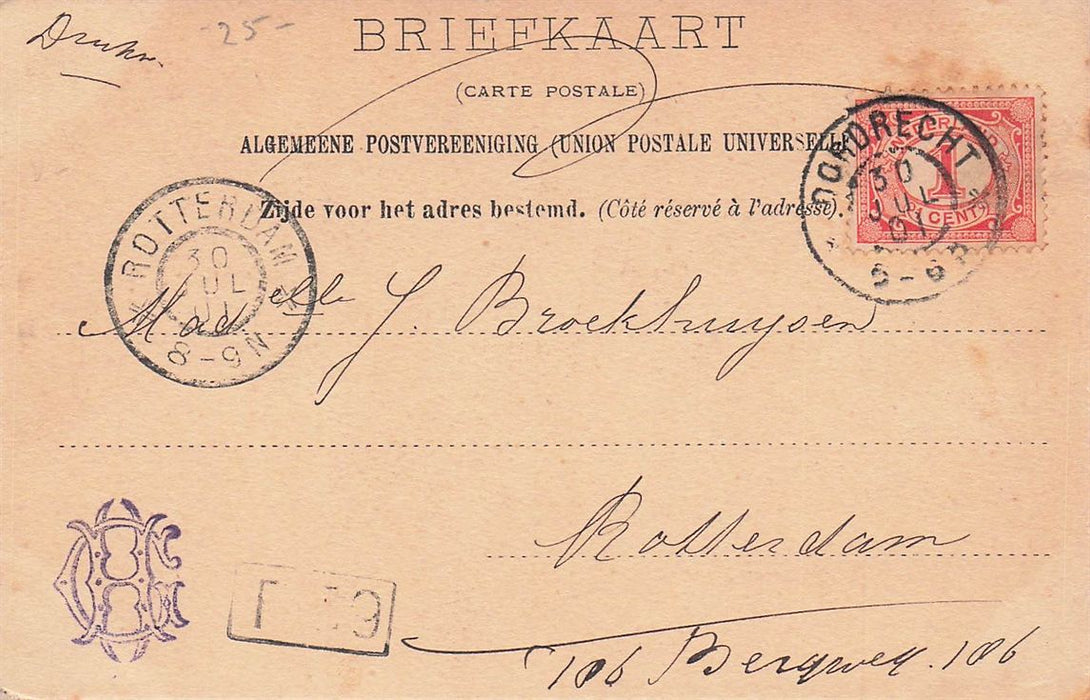 -25-
BRIEFKAART
(CARTE POSTALE)
ALGEMEENE POSTVEREENIGING (UNION POSTALE UNIVERSELLE)
Zijde voor het adres bestemd. (Côté réservé à l'adresse).
DORDRECHT
30
JUL
01
1
CENT
ROTTERDAM
30
JUL
01
8-9N
Madelle J. Broekhuysen
Rotterdam
106 Bergweg. 106